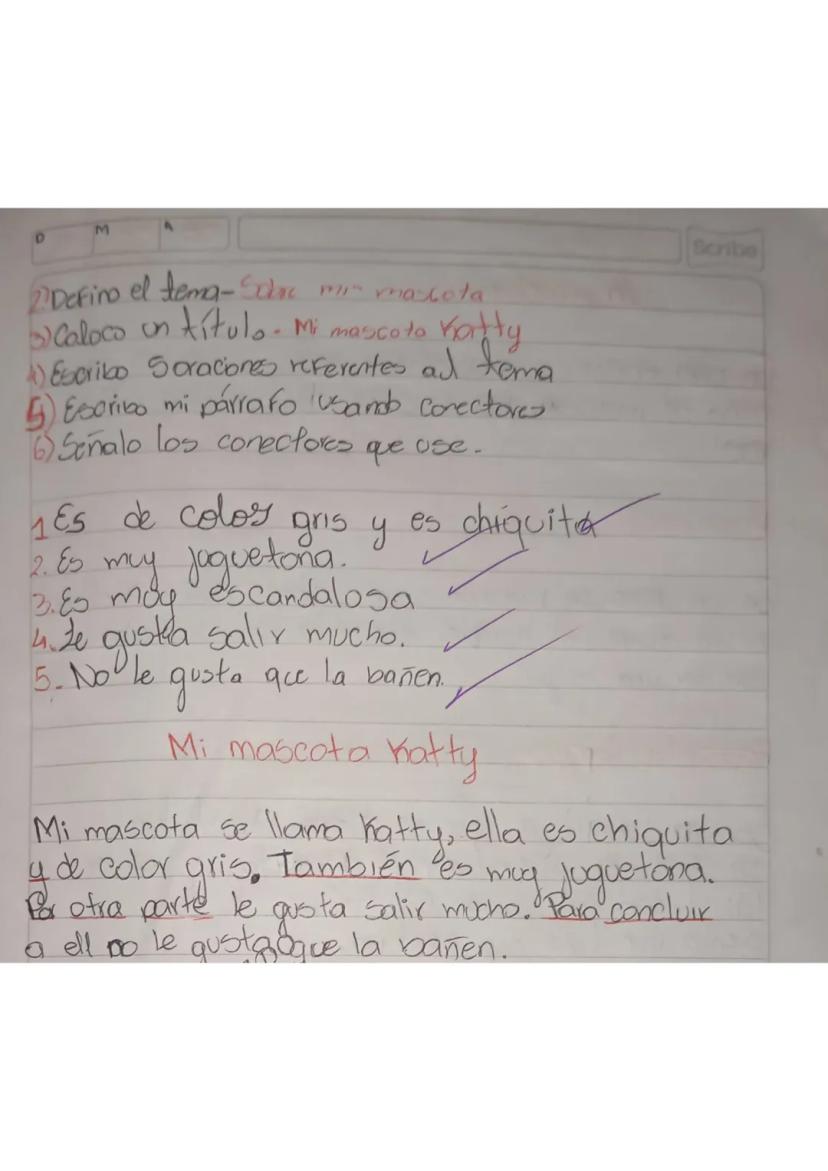 D M A
Scribe
2) Defino el tema - Sobre mi mascota
3) Coloco un título - Mi mascota Katty
4) Escribo 5 oraciones referentes al tema
5) Escribo mi párrafo usando conectores
6) Señalo los conectores que use.
1 Es de color gris y es chiquita
2. Es muy juguetona.
3. Es muy escandalosa
4. Le gusta salir mucho.
5. No le gusta que la bañen.
Mi mascota Katty
Mi mascota se llama Katty, ella es chiquita
y de color gris. También es muy juguetona.
Por otra parte le gusta salir mucho. Para concluir
a ell no le gusta que la bañen.